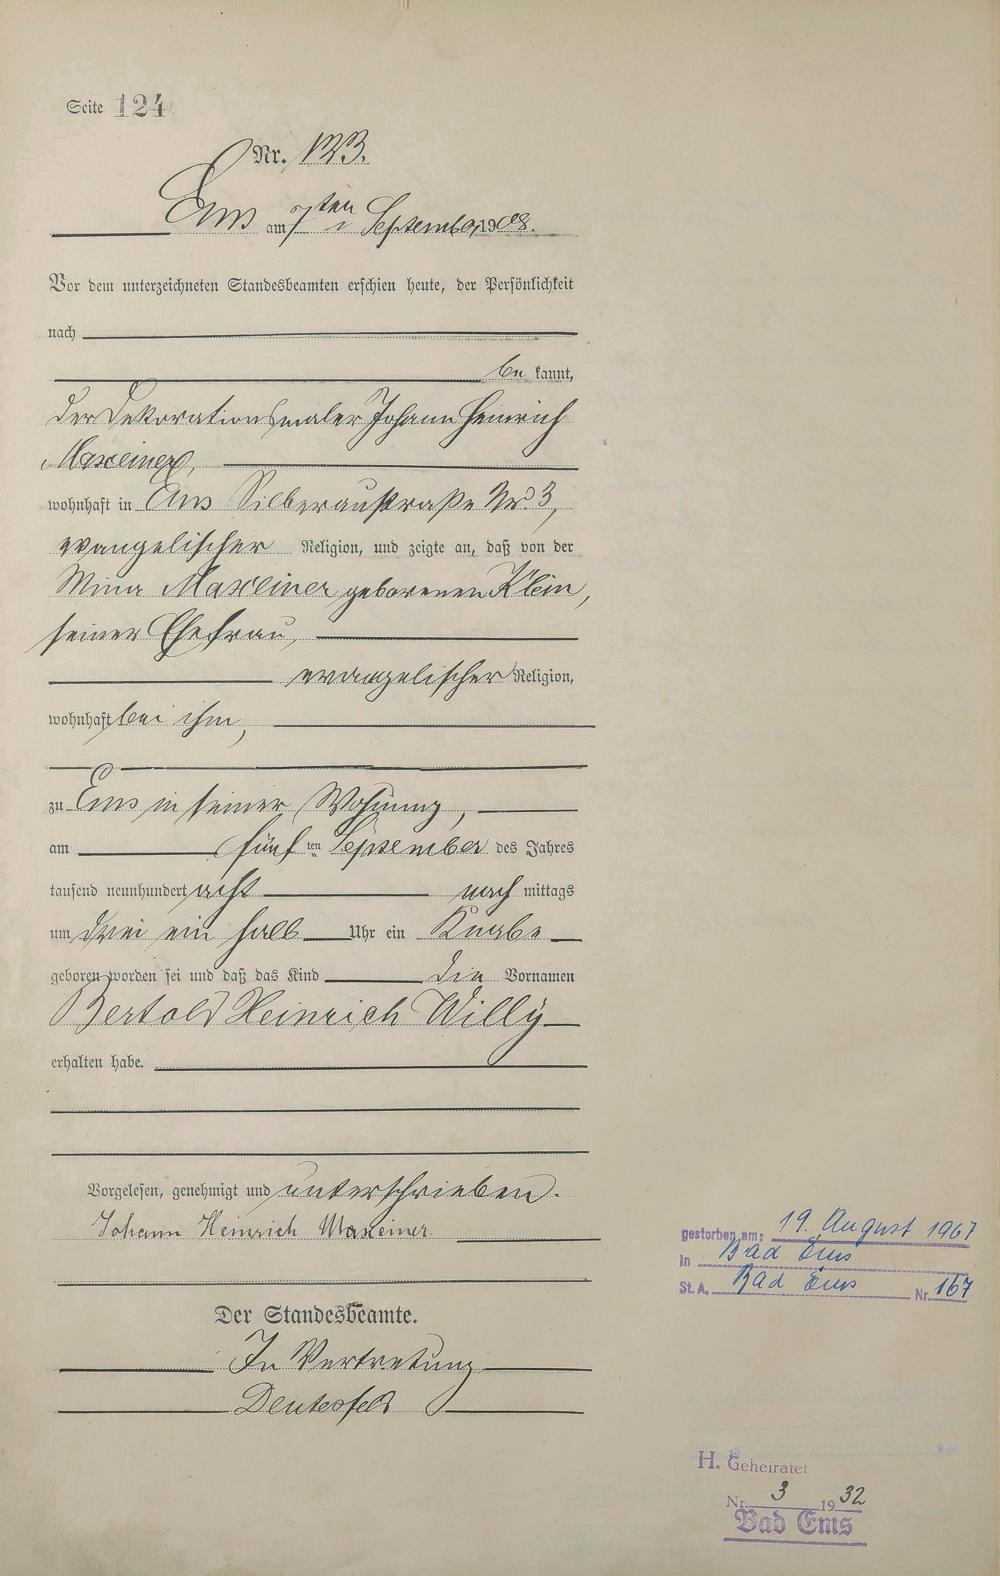 Seite 124
Nr. 123.
Ems am 7ten September 1908.
Vor dem unterzeichneten Standesbeamten erschien heute, der Persönlichkeit
nach
be kannt,
der Dekorationsmaler Johann Heinrich
Maxeiner,
wohnhaft in Ems Silberaustraße Nr. 3,
evangelischer Religion, und zeigte an, daß von der
Mina Maxeiner geborenen Klein,
seiner Ehefrau,
evangelischer Religion,
wohnhaft bei ihm,
zu Ems in seiner Wohnung,
am fünf ten September des Jahres
tausend neunhundert acht nach mittags
um drei ein halb Uhr ein Knabe
geboren worden sei und daß das Kind die Vornamen
Bertold Heinrich Willy
erhalten habe.
Vorgelesen, genehmigt und unterschrieben.
Johann Heinrich Maxeiner
Der Standesbeamte.
In Vertretung
gestorben am: 19. August 1967
In Bad Ems
St. A. Bad Ems Nr. 167
H. Geheiratet
Nr. 3 1932
Bad Ems